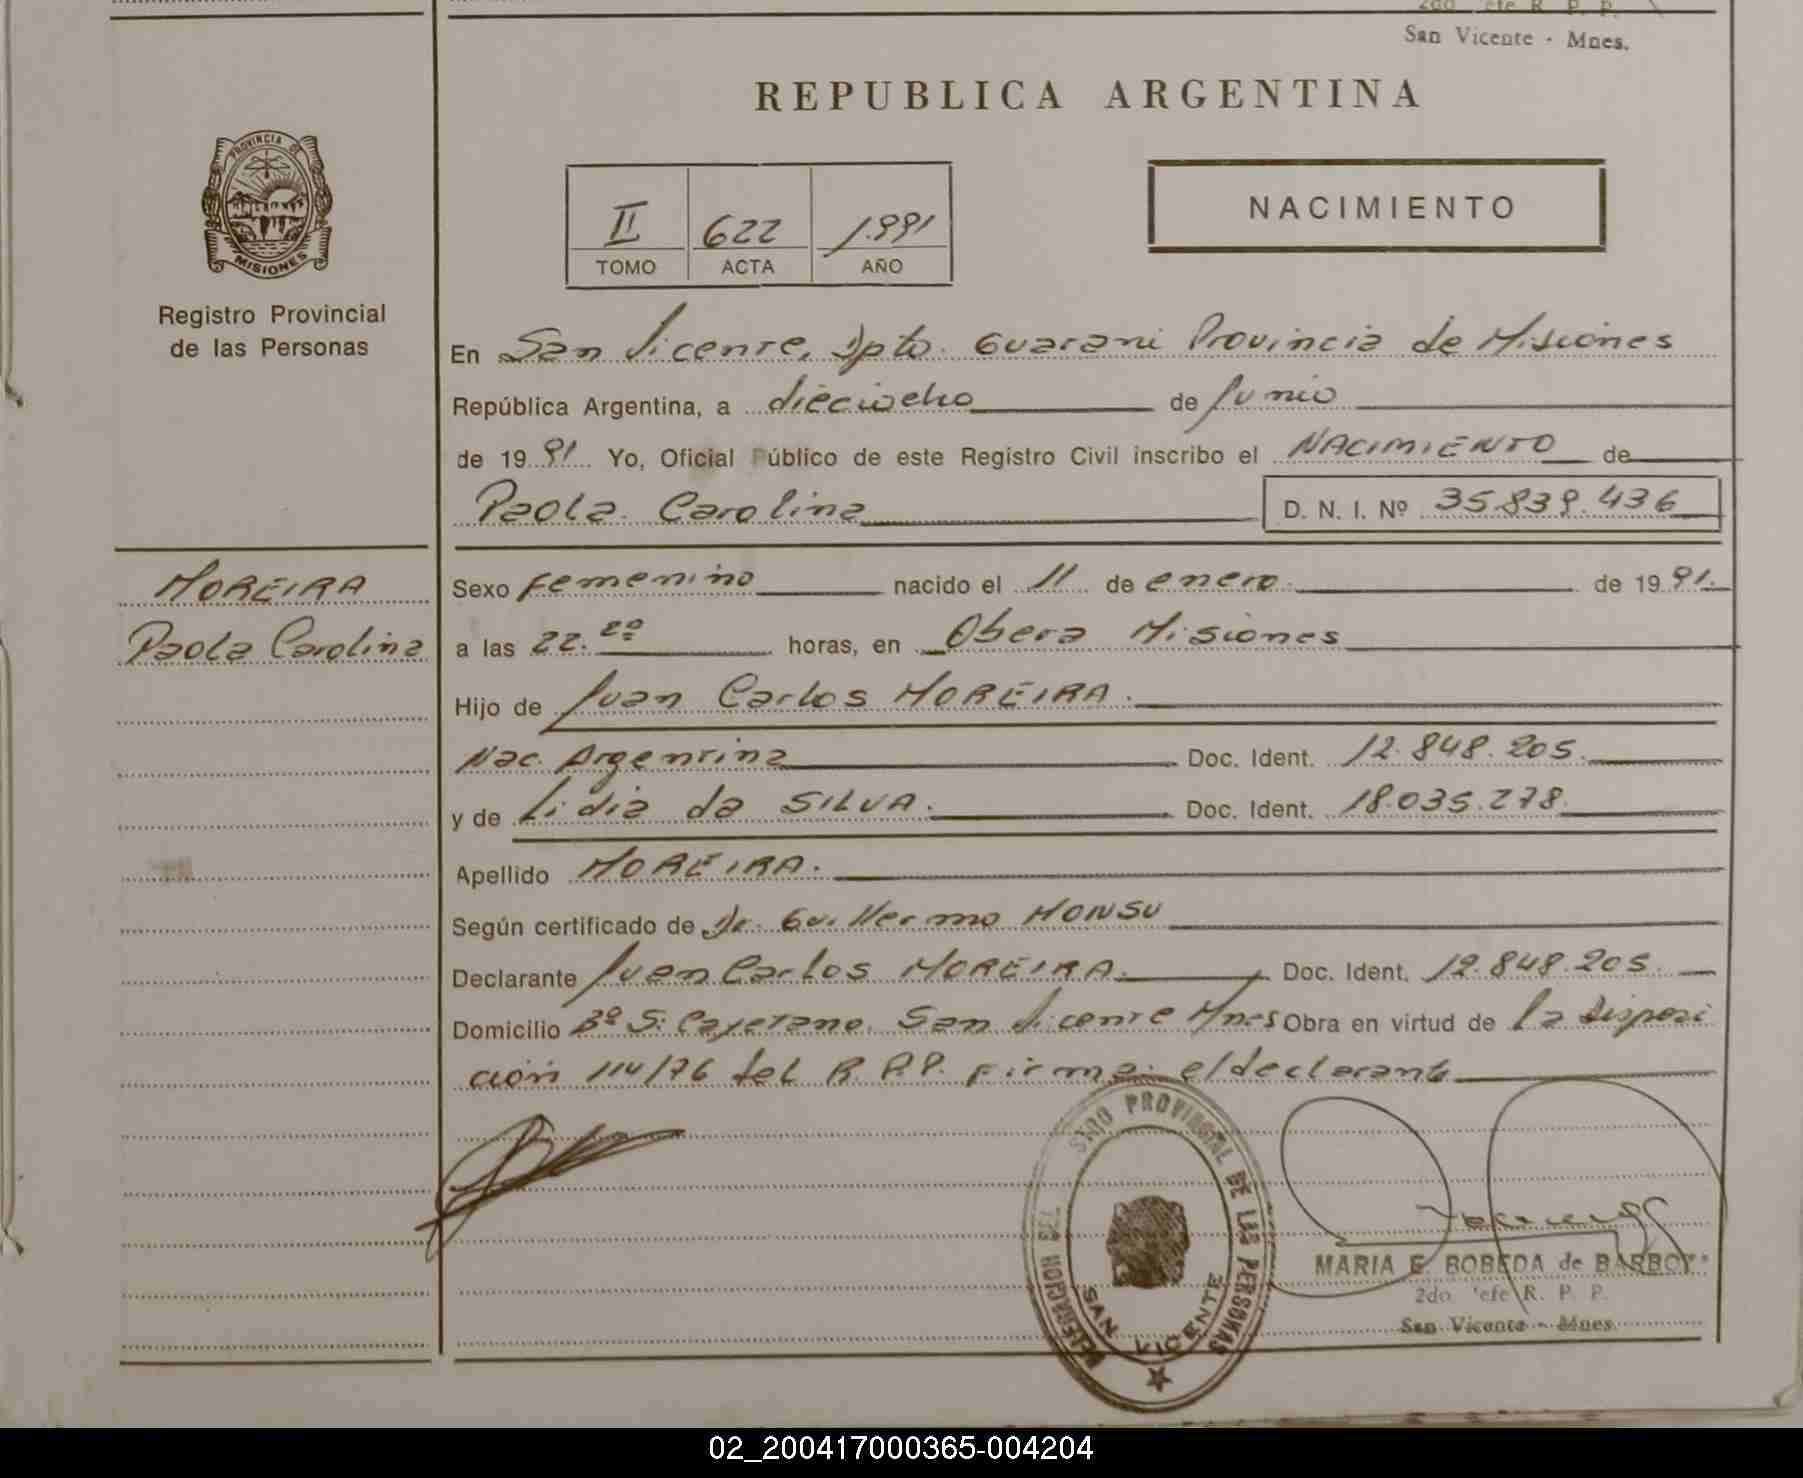 San Vicente - Mnes.
REPUBLICA ARGENTINA
PROVINCIA DE
MISIONES
Registro Provincial
de las Personas
II 622 1.991
TOMO ACTA AÑO
NACIMIENTO
En San Vicente, Dpto. Guarani Provincia de Misiones
República Argentina, a dieciocho de Junio
de 1991 Yo, Oficial Público de este Registro Civil inscribo el NACIMIENTO de
Paola Carolina D. N. I. Nº 35.839.436
MOREIRA
Paola Carolina
Sexo Femenino nacido el 11 de enero de 1991.
a las 22.20 horas, en Obera Misiones
Hijo de Juan Carlos MOREIRA.
Nac. Argentina Doc. Ident. 12.848.205.
y de Lidia da SILVA. Doc. Ident. 18.035.278.
Apellido MOREIRA.
Según certificado de Dr. Guillermo MONSU
Declarante Juan Carlos MOREIRA. Doc. Ident. 12.848.205.
Domicilio Bº S. Cayetano. San Vicente Mnes Obra en virtud de la disposi
ción 114/76 del R.P.P. Firma: el declarante
PROVINCIAL DE LAS PERSONAS
DELEGACION DEL
SAN VICENTE
MARIA E. BOBEDA de BARBOY
2do Jefe R. P. P.
San Vicente - Mnes.
02_200417000365-004204